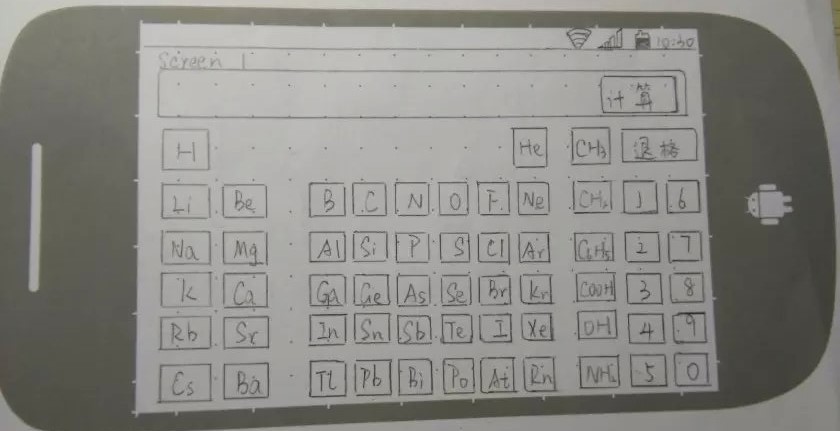 10:30
Screen 1
计算
H He CH3 退格
Li Be B C N O F Ne CH2 1 6
Na Mg Al Si P S Cl Ar C6H5 2 7
K Ca Ga Ge As Se Br Kr COOH 3 8
Rb Sr In Sn Sb Te I Xe OH 4 9
Cs Ba Tl Pb Bi Po At Rn NH2 5 0